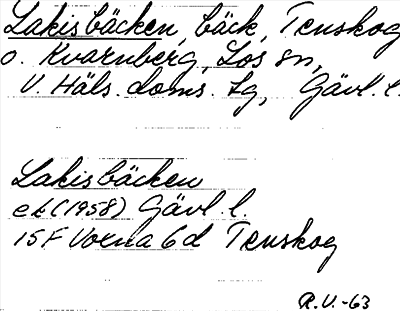 Lakisbäcken, bäck, Tenskog
o. Kvarnberg, Los sn,
V. Häls. doms. lg, Gävl. l.
Lakisbäcken
ek (1958) Gävl. l.
15F Vorna 6d Tenskog
R.V.-63